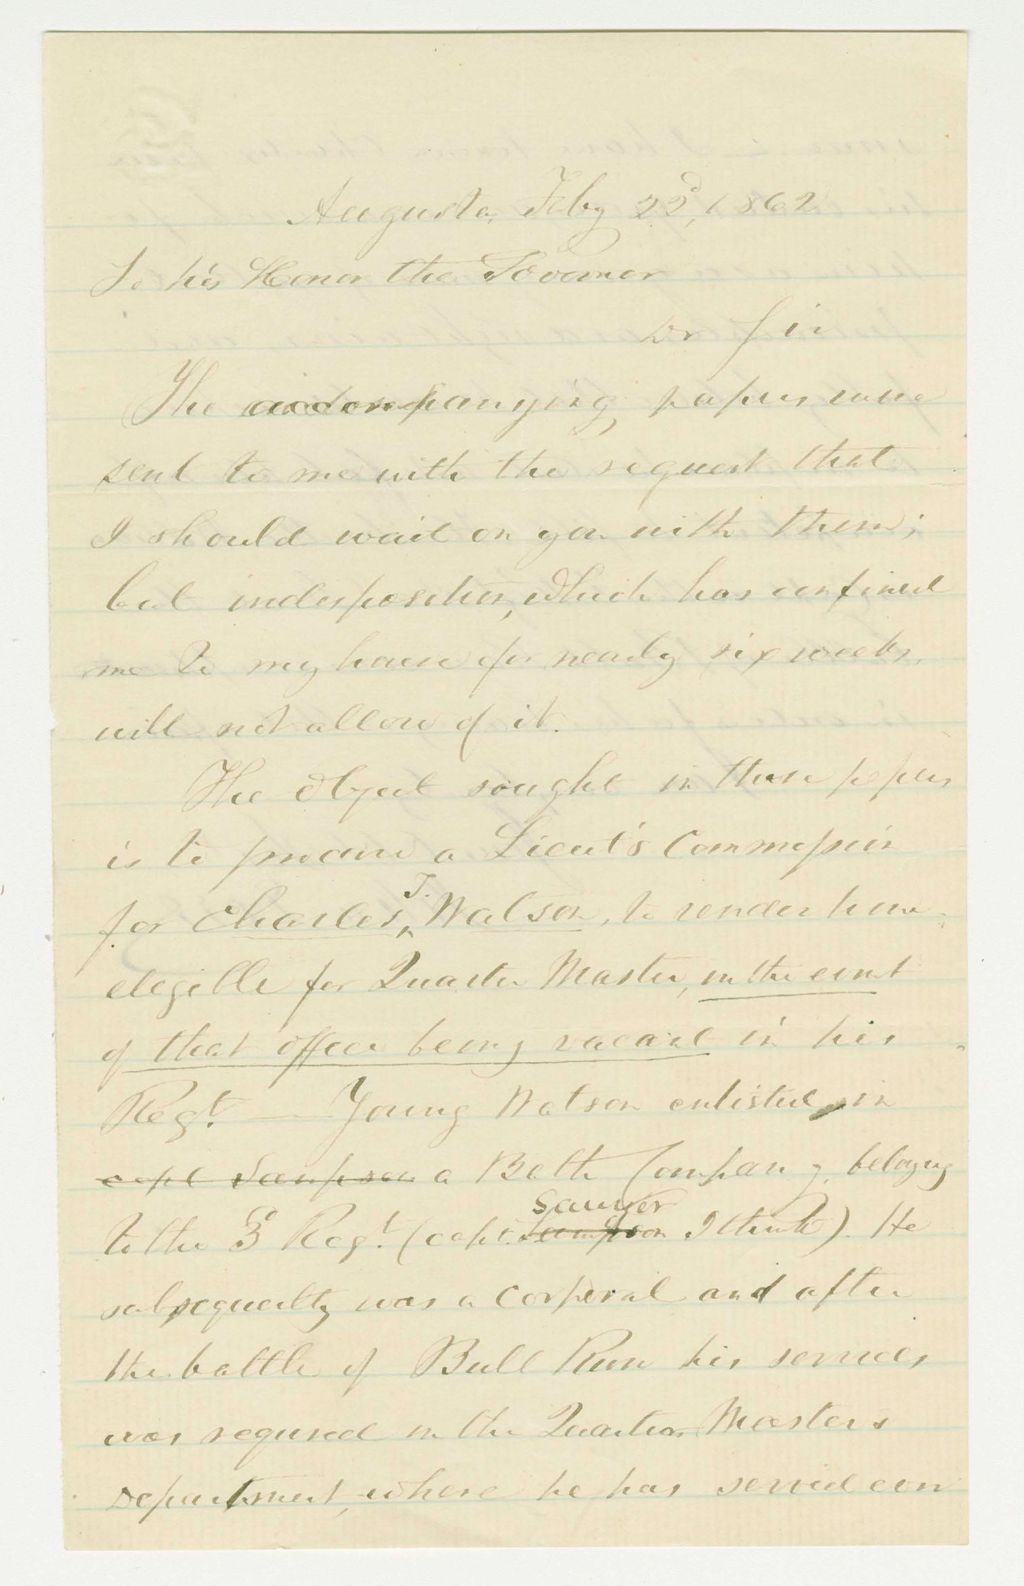 Augusta, Feby 22d, 1862
To his Honor the Governor
Dr Sir
The accompanying, papers were
sent to me with the request that
I should wait on you with them;
but indisposition, which has confined
me to my house for nearly six weeks,
will not allow of it.
The object sought in these papers
is to procure a Lieut's Commission
for Charles T. Watson, to render him
elegible for Quarter Master, in the event
of that officer being vacant in his
Regt. — Young Watson enlisted in
capt Sampson a Bath Company, belonging
to the 3d Regt. (capt. Sampson Sawyer I think). He
subsequently was a Corporal and after
the battle of Bull Run his services
was required in the Quarter Masters
Department, where he has served ever